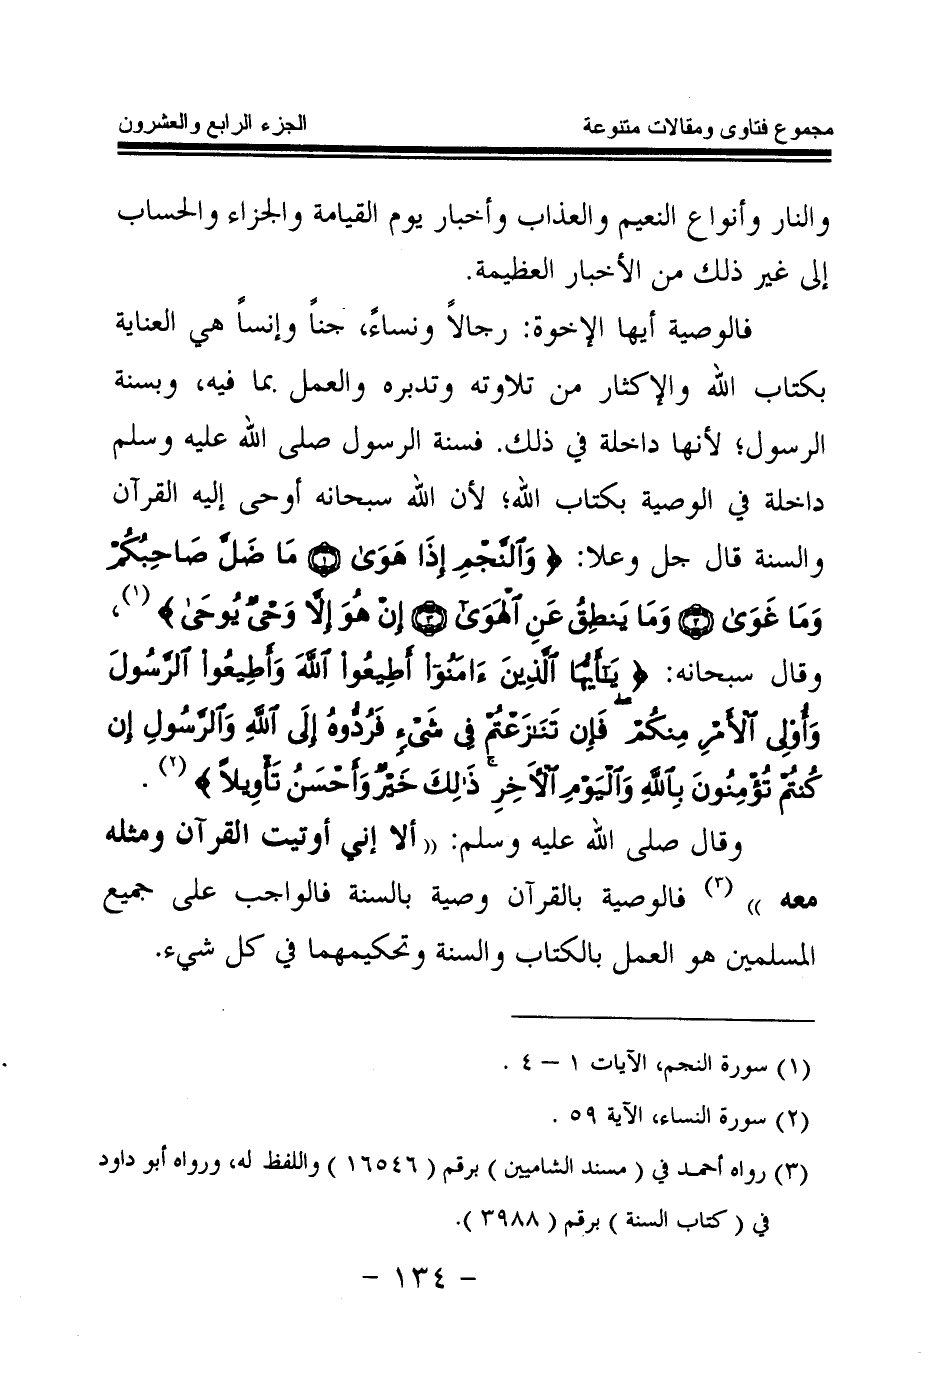 مجموع فتاوى ومقالات متنوعة الجزء الرابع والعشرون
والنار وأنواع النعيم والعذاب وأخبار يوم القيامة والجزاء والحساب
إلى غير ذلك من الأخبار العظيمة.
فالوصية أيها الإخوة: رجالاً ونساءً، جناً وإنساً هي العناية
بكتاب الله والإكثار من تلاوته وتدبره والعمل بما فيه، وبسنة
الرسول؛ لأنها داخلة في ذلك. فسنة الرسول صلى الله عليه وسلم
داخلة في الوصية بكتاب الله؛ لأن الله سبحانه أوحى إليه القرآن
والسنة قال جل وعلا: ﴿ وَٱلنَّجْمِ إِذَا هَوَىٰ ۝١ مَا ضَلَّ صَاحِبُكُمْ
وَمَا غَوَىٰ ۝٢ وَمَا يَنطِقُ عَنِ ٱلْهَوَىٰٓ ۝٣ إِنْ هُوَ إِلَّا وَحْىٌ يُوحَىٰ ﴾ (١)،
وقال سبحانه: ﴿ يَـٰٓأَيُّهَا ٱلَّذِينَ ءَامَنُوٓا۟ أَطِيعُوا۟ ٱللَّهَ وَأَطِيعُوا۟ ٱلرَّسُولَ
وَأُو۟لِى ٱلْأَمْرِ مِنكُمْ ۖ فَإِن تَنَـٰزَعْتُمْ فِى شَىْءٍ فَرُدُّوهُ إِلَى ٱللَّهِ وَٱلرَّسُولِ إِن
كُنتُمْ تُؤْمِنُونَ بِٱللَّهِ وَٱلْيَوْمِ ٱلْـَٔاخِرِ ۚ ذَٰلِكَ خَيْرٌ وَأَحْسَنُ تَأْوِيلًا ﴾ (٢) .
وقال صلى الله عليه وسلم: (( ألا إني أوتيت القرآن ومثله
معه )) (٣) فالوصية بالقرآن وصية بالسنة فالواجب على جميع
المسلمين هو العمل بالكتاب والسنة وتحكيمهما في كل شيء.
(١) سورة النجم، الآيات ١ – ٤ .
(٢) سورة النساء، الآية ٥٩ .
(٣) رواه أحمد في ( مسند الشاميين ) برقم ( ١٦٥٤٦ ) واللفظ له، ورواه أبو داود
في ( كتاب السنة ) برقم ( ٣٩٨٨ ).
- ١٣٤ -